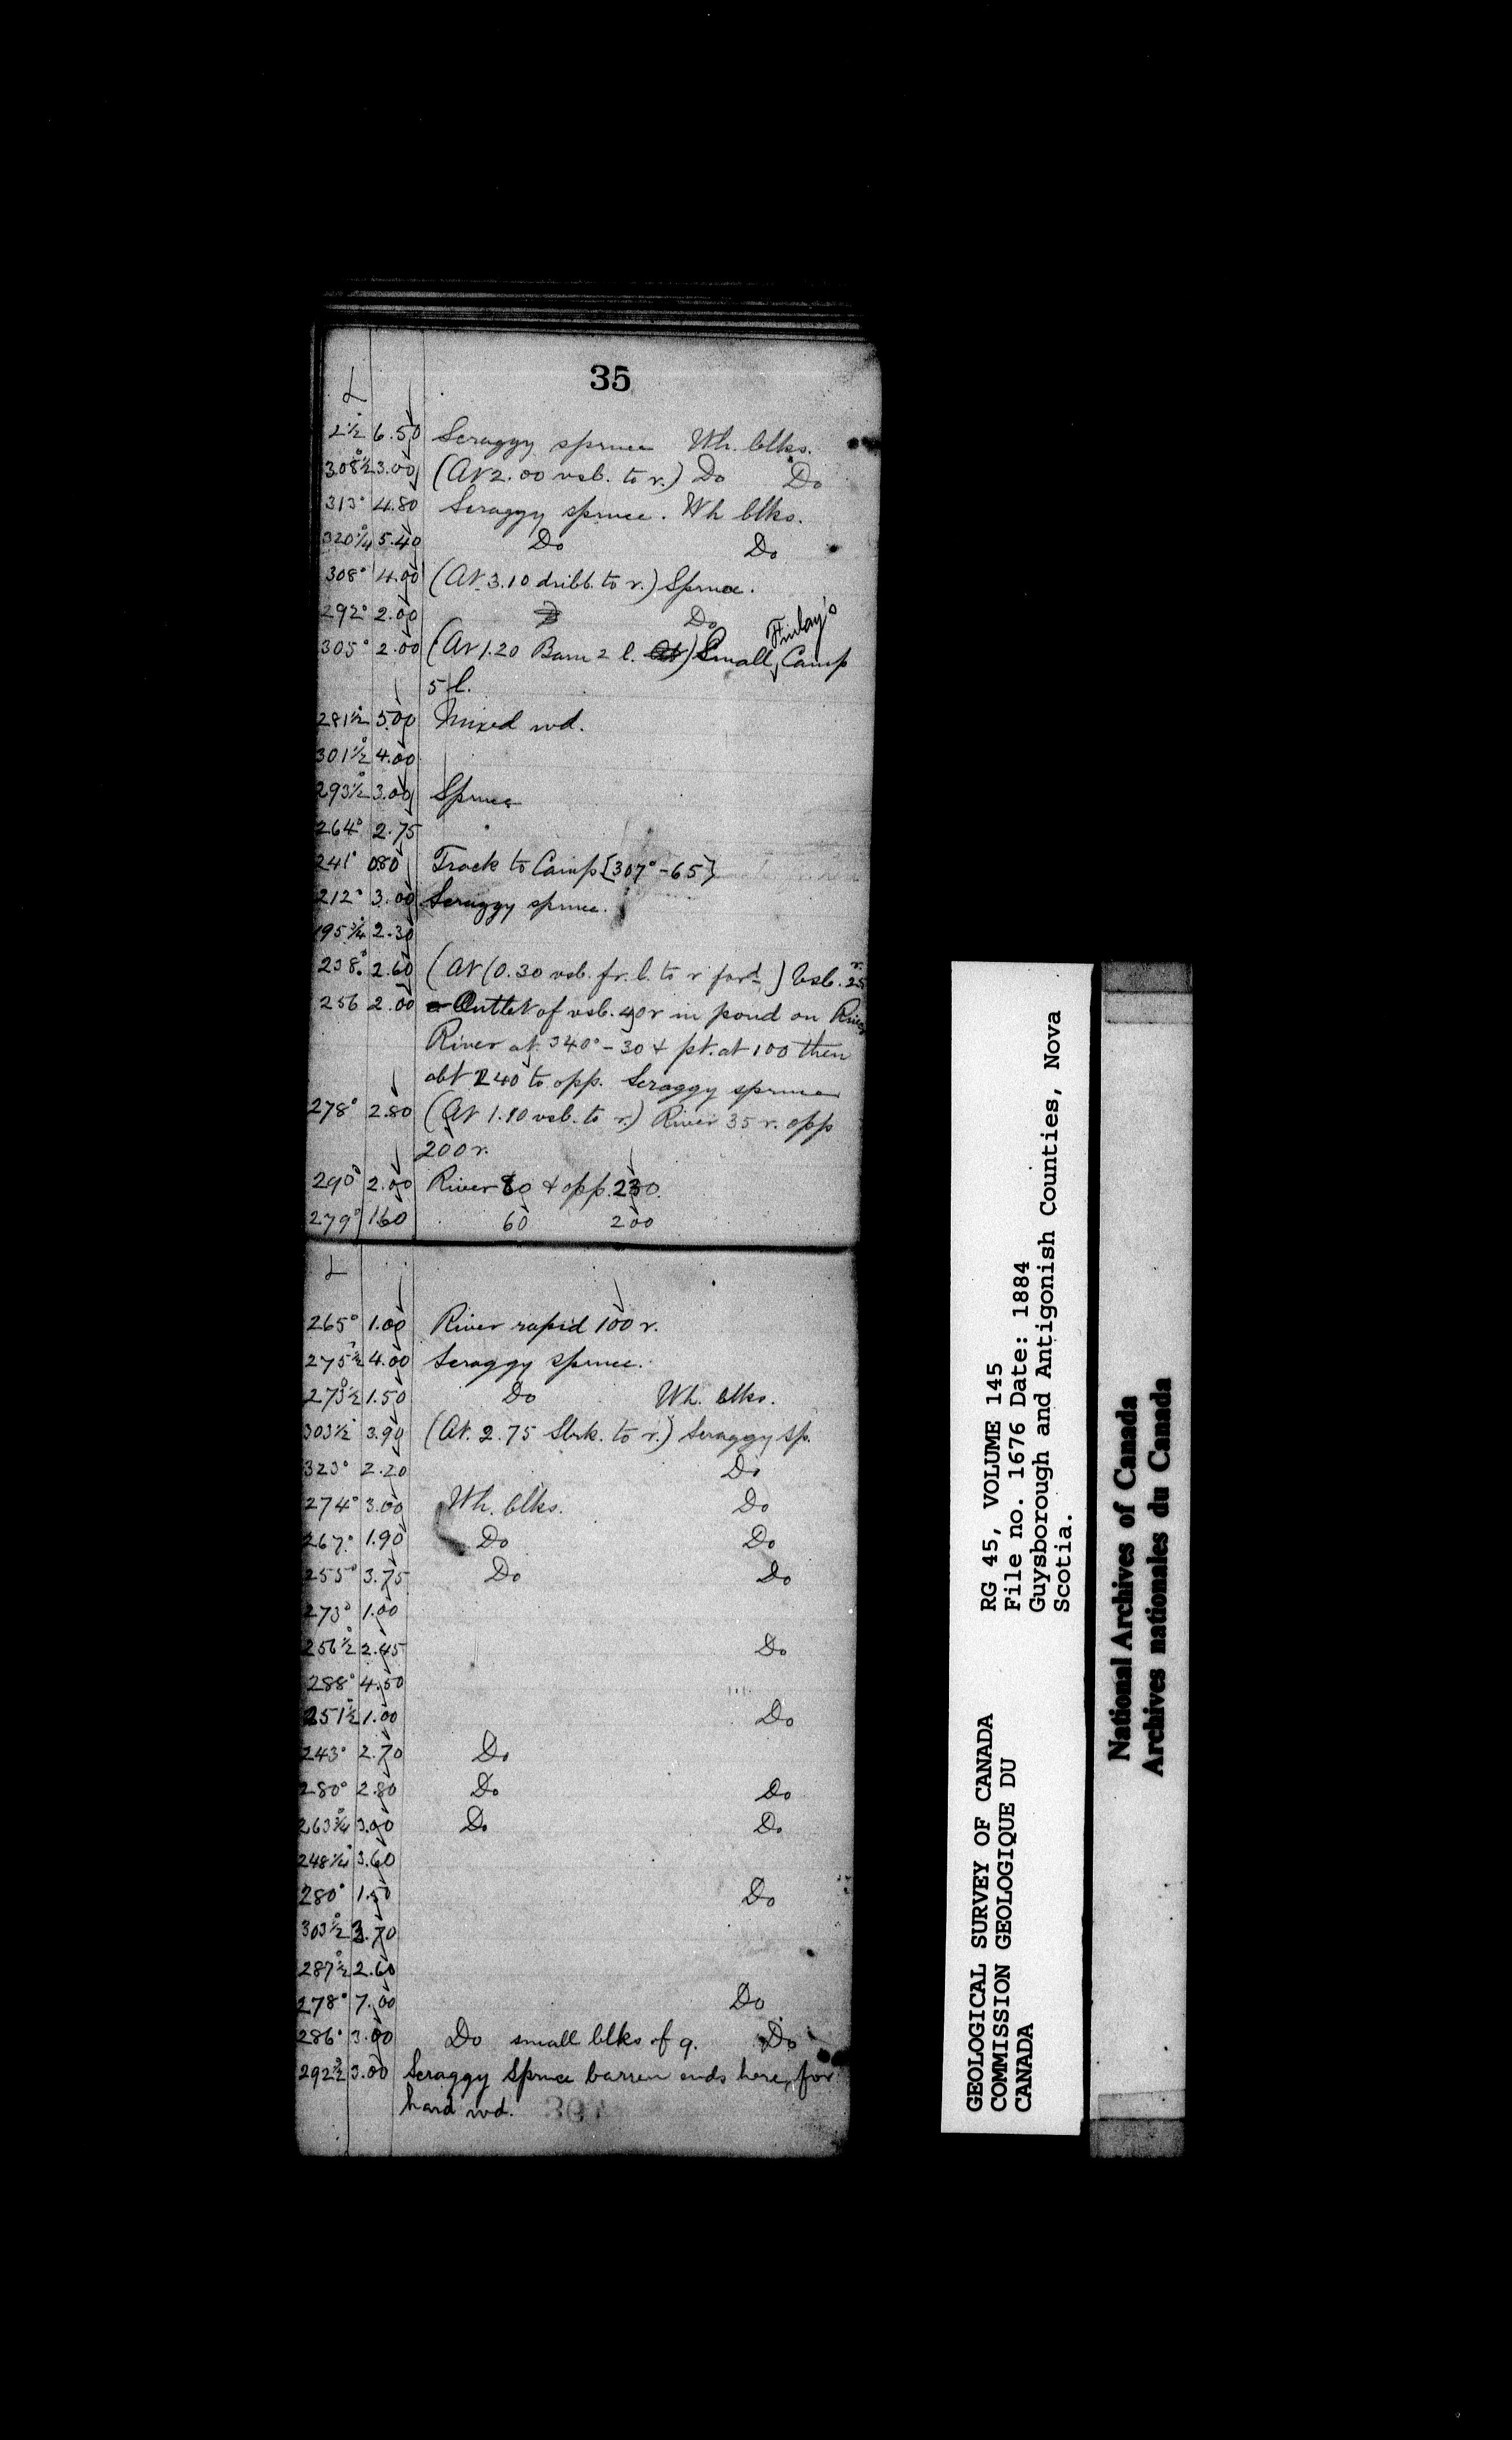 35
L
2½° 6.50 Scraggy spruce Wh. blks.
308½° 3.00 (At 2.00 vsb. to r.) Do Do
313° 4.80 Scraggy spruce. Wh blks.
320¼° 5.40 Do Do
308° 4.00 (At 3.10 dribb. to r.) Spruce.
292° 2.00 Do
Finlay's
305° 2.00 (At 1.20 Barn 2 l.) Small Camp
5 l.
281½ 5.00 Mixed wd.
301½° 4.00
293½° 3.00 Spruce
264° 2.75
241° 0.80 Track to Camp [307° - 65]
212° 3.00 Scraggy spruce.
195¾° 2.30
238° 2.60 (At (0.30 vsb. fr. l. to r ford) bsb. 25 r.
256 2.00 Outlet of vsb. 40 r in pond on River
River at 340° - 30 & pt. at 100 then
abt 240 to opp. Scraggy spruce
278° 2.80 (At 1.10 vsb. to r.) River 35 r. opp
200 r.
290° 2.00 River 80 & opp. 230.
279° 1.60 60 200
L
265° 1.00 River rapid 100 r.
275½° 4.00 Scraggy spruce.
273½° 1.50 Do Wh. blks.
303½° 3.90 (At. 2.75 Sbrk. to r.) Scraggy sp.
323° 2.20 Do
274° 3.00 Wh. blks. Do
267° 1.90 Do Do
255° 3.75 Do Do
273° 1.00
256½° 2.45 Do
288° 4.50
251½° 1.00 Do
243° 2.70 Do
280° 2.80 Do Do
263¾° 3.00 Do Do
248¼° 3.60
280° 1.50 Do
303½° 3.70
287½° 2.60
278° 7.00 Do
286° 3.00 Do small blks of q. Do
292½° 3.00 Scraggy Spruce barren ends here, for
hard wd.
GEOLOGICAL SURVEY OF CANADA
COMMISSION GEOLOGIQUE DU
CANADA
RG 45, VOLUME 145
File no. 1676 Date: 1884
Guysborough and Antigonish Counties, Nova
Scotia.
National Archives of Canada
Archives nationales du Canada